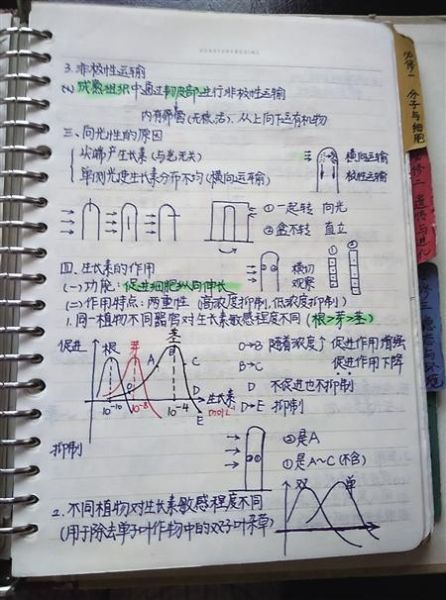 3.非极性运输
成熟组织中通过韧皮部进行非极性运输
从上向下运有机物
三、向光性的原因
尖端产生长素(与光无关)
单侧光使生长素分布不均(横向运输)
横向运输
极性运输
①一起转 向光
②盒不转 直立
四、生长素的作用
(一)功能:促进细胞纵向伸长
横切
观察
(二)作用特点:两重性(高浓度抑制,低浓度抑制)
1.同一植物不同器官对生长素敏感程度不同(根>芽>茎)
促进
根
芽
茎
A
B
C
D
E
生长素
mol/L
10⁻¹⁰
10⁻⁸
10⁻⁴
抑制
O→B 随着浓度↑促进作用增强
B→C 促进作用下降
D 不促进也不抑制
D→E 抑制
②是A
①是A~C(不含)
2.不同植物对生长素敏感程度不同
(用于除去单子叶作物中的双子叶杂草)
双
单
必修一 分子与细胞